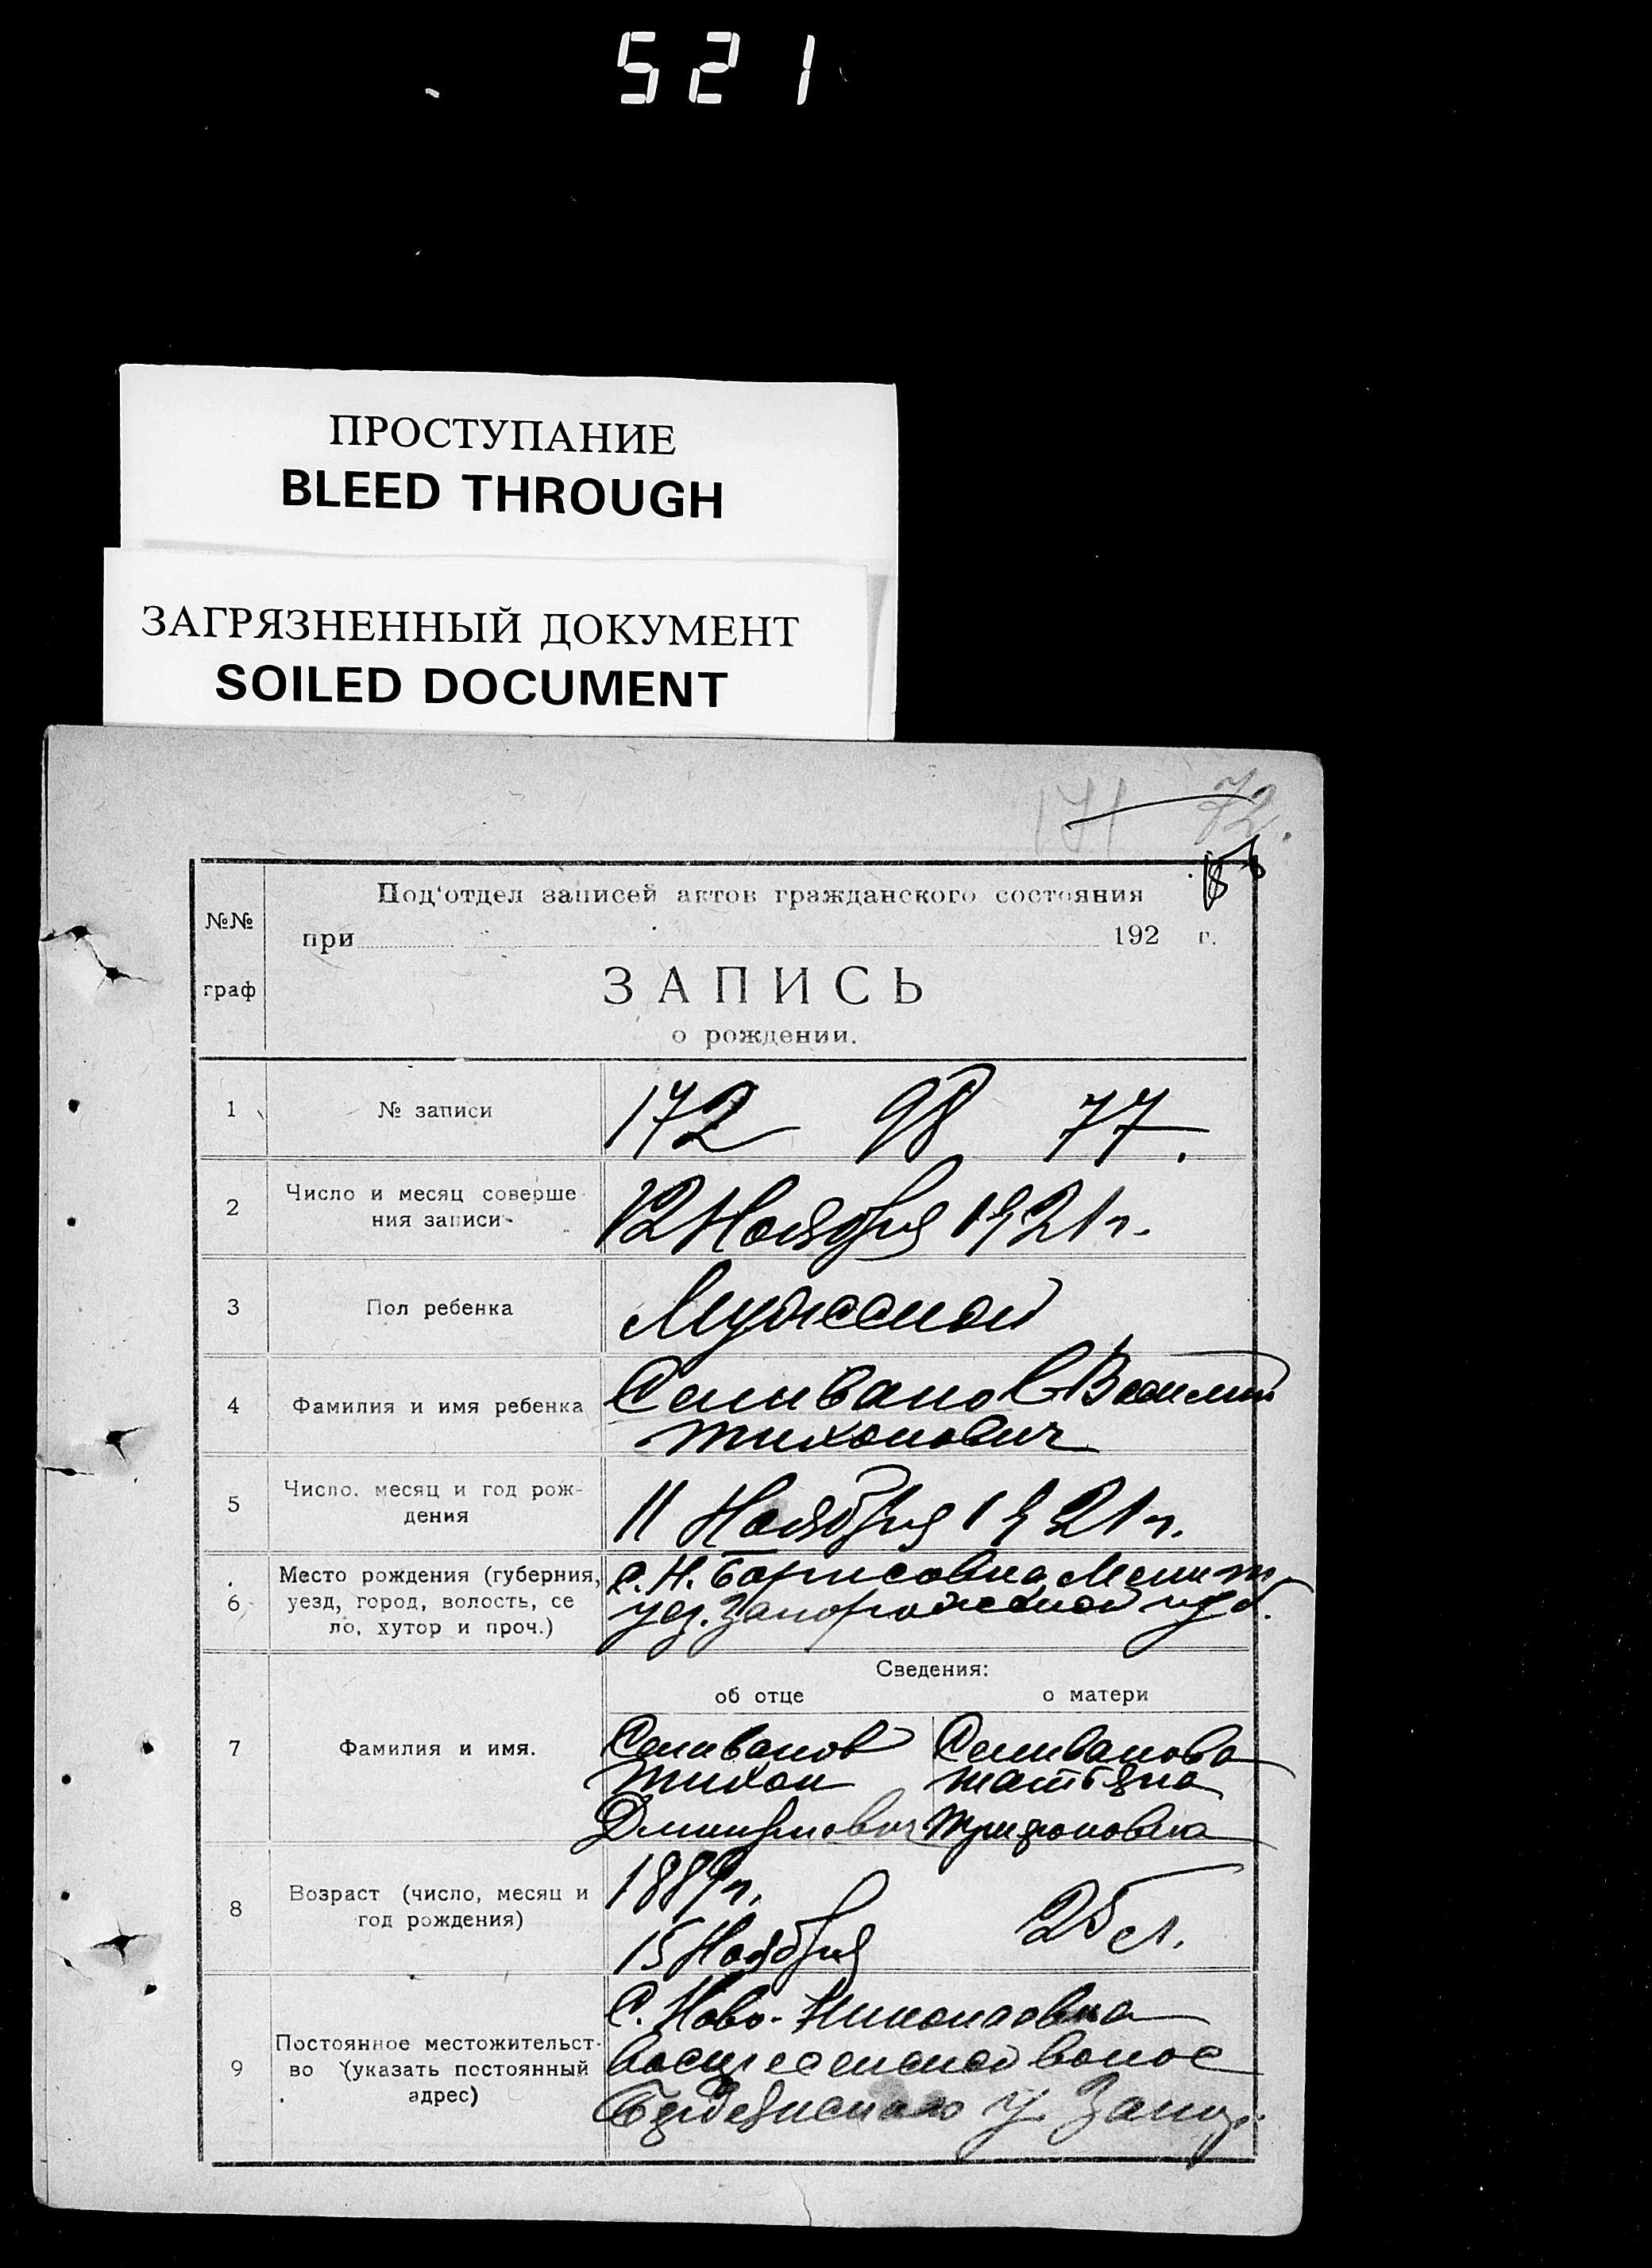 521
ПРОСТУПАНИЕ
BLEED THROUGH
ЗАГРЯЗНЕННЫЙ ДОКУМЕНТ
SOILED DOCUMENT
171 72.
№№
граф
Под‘отдел записей актов гражданского состояния
при 192 г.
ЗАПИСЬ
о рождении.
1 № записи 172 98 77.
2 Число и месяц соверше
ния записи 12 Ноября 1921 г.
3 Пол ребенка Мужской
4 Фамилия и имя ребенка Селиванов Василий
Тихонович
5 Число, месяц и год рож-
дения 11 Ноября 1921 г.
6 Место рождения (губерния,
уезд, город, волость, се
ло, хутор и проч.)
с. Н. Борисовка Мелит.
уез. Запорожской губ.
Сведения:
об отце о матери
7 Фамилия и имя.
Селиванов Селиванова
Тихон Татьяна
Дмитриевич Трифоновна
8 Возраст (число, месяц и
год рождения)
1889 г.
15 Ноября
25 л.
9 Постоянное местожительст-
во (указать постоянный
адрес)
С. Ново-Николаевка
волос
Бердянского у. Запор.